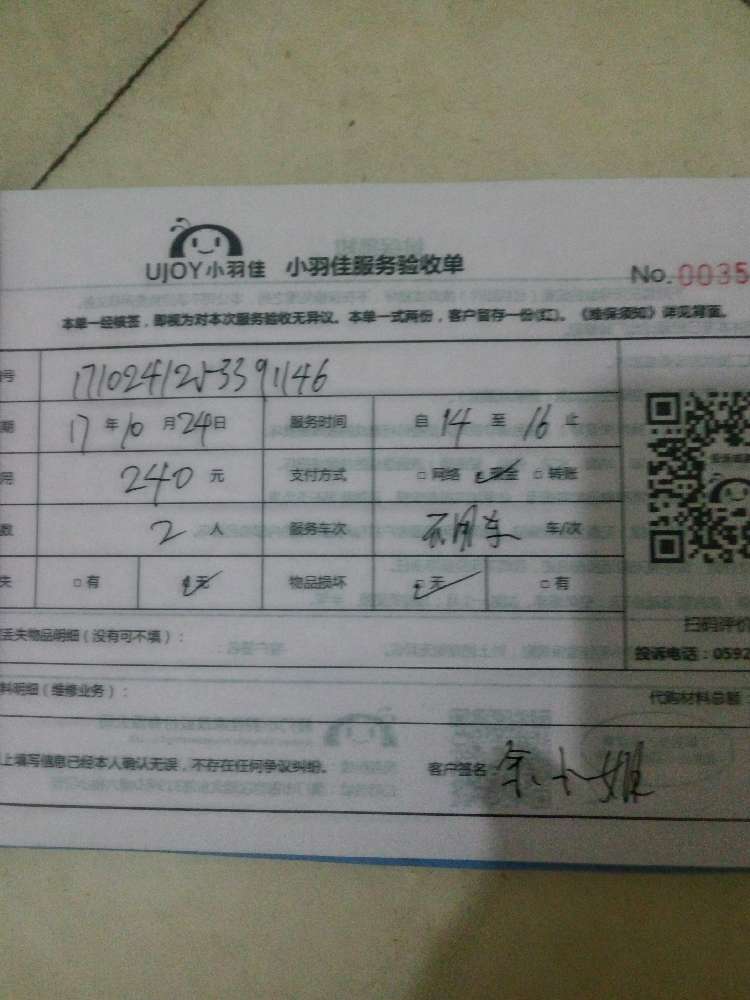 UJOY小羽佳 小羽佳服务验收单
No.0035
本单一经核签，即视为对本次服务验收无异议。本单一式两份，客户留存一份(红)。《维保须知》详见背面。
号 1710241253391146
期 17年10月24日 服务时间 自14至16止
用 240元 支付方式 □网络 ☑现金 □转账
数 2人 服务车次 不用车 车/次
失 □有 ☑无 物品损坏 ☑无 □有
扫码评价
丢失物品明细（没有可不填）：
投诉电话：0592
料明细（维修业务）：
代购材料总额
上填写信息已经本人确认无误，不存在任何争议纠纷。 客户签名：余小姐